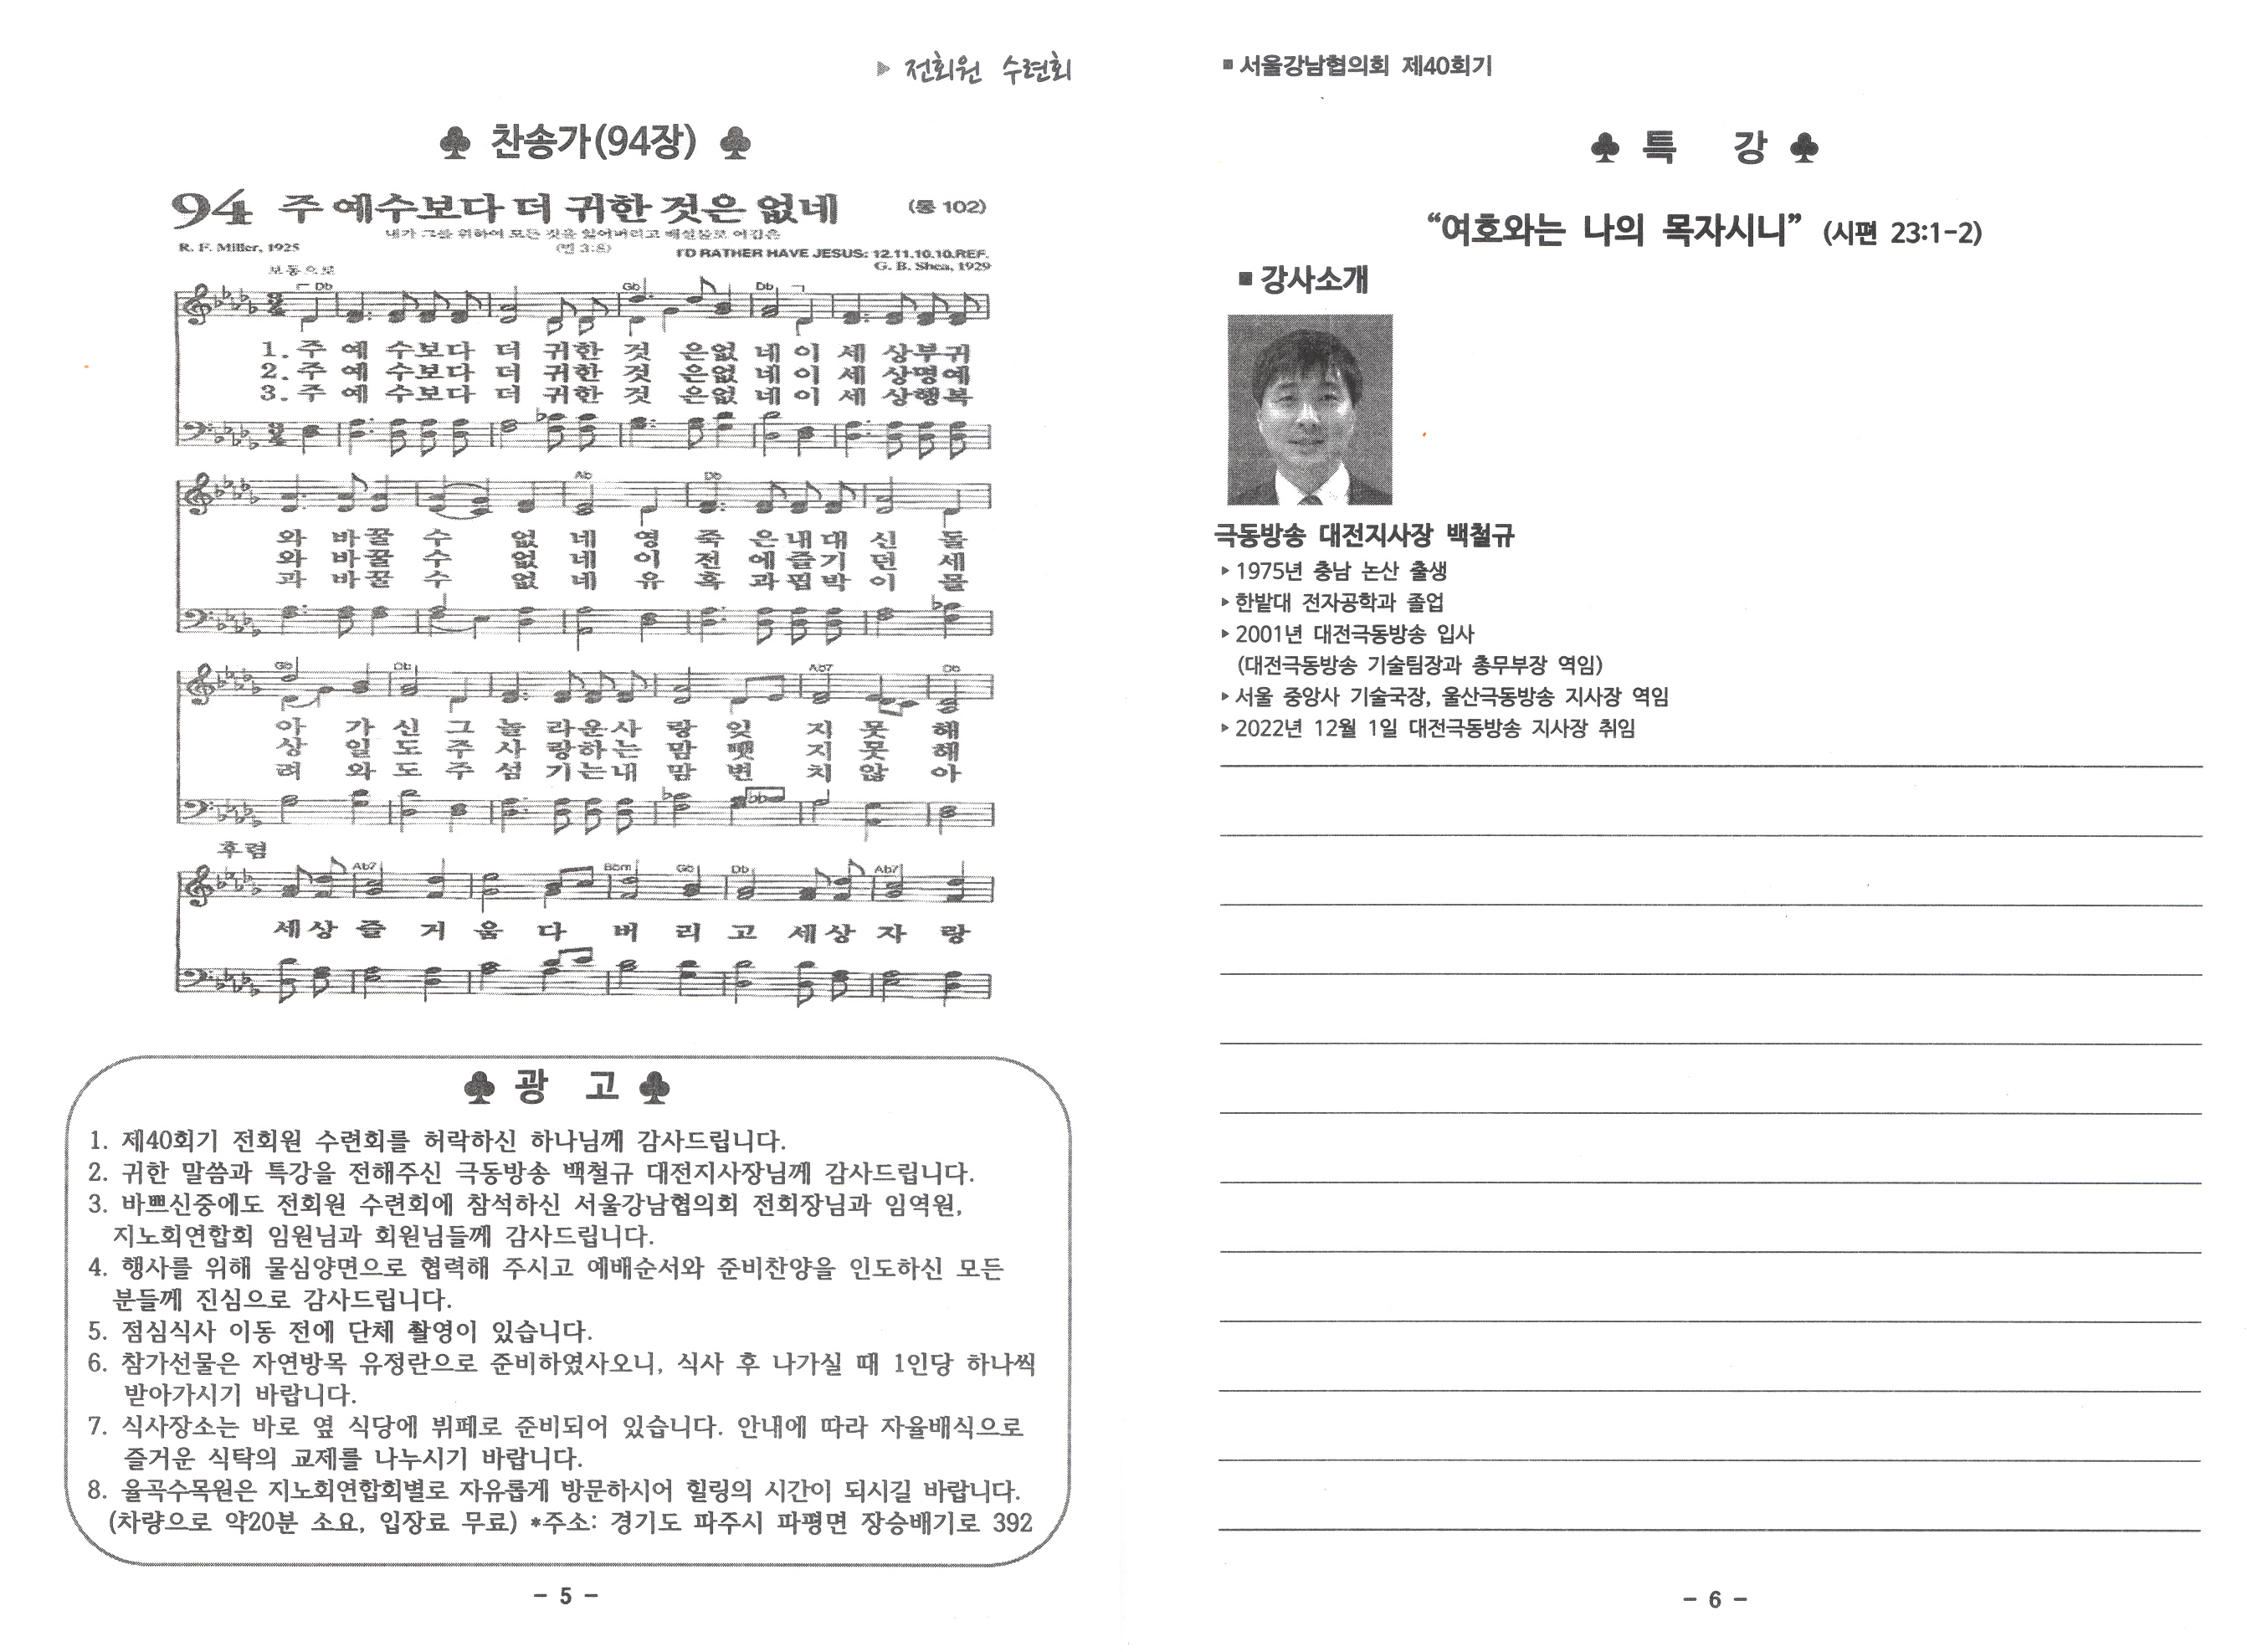 ▶ 전회원 수련회
♣ 찬송가(94장) ♣
94 주 예수보다 더 귀한 것은 없네 (통 102)
내가 그를 위하여 모든 것을 잃어버리고 배설물로 여김은
R. F. Miller, 1925 (빌 3:8) I'D RATHER HAVE JESUS: 12.11.10.10.REF.
보통으로 G. B. Shea, 1929
Db Gb Db
1. 주 예 수보다 더 귀한 것 은없 네 이 세 상부귀
2. 주 예 수보다 더 귀한 것 은없 네 이 세 상명예
3. 주 예 수보다 더 귀한 것 은없 네 이 세 상행복
Ab Db
와 바꿀 수 없 네 영 죽 은내대 신 돌
와 바꿀 수 없 네 이 전 에즐기 던 세
과 바꿀 수 없 네 유 혹 과핍박 이 몰
Gb Db Ab7 Db
아 가 신 그 놀 라운사 랑 잊 지 못 해
상 일 도 주 사 랑하는 맘 뺏 지 못 해
려 와 도 주 섬 기는내 맘 변 치 않 아
후렴
Ab7 Bbm Gb Db Ab7
세상 즐 거 움 다 버 리 고 세상 자 랑
♣ 광 고 ♣
1. 제40회기 전회원 수련회를 허락하신 하나님께 감사드립니다.
2. 귀한 말씀과 특강을 전해주신 극동방송 백철규 대전지사장님께 감사드립니다.
3. 바쁘신중에도 전회원 수련회에 참석하신 서울강남협의회 전회장님과 임역원,
지노회연합회 임원님과 회원님들께 감사드립니다.
4. 행사를 위해 물심양면으로 협력해 주시고 예배순서와 준비찬양을 인도하신 모든
분들께 진심으로 감사드립니다.
5. 점심식사 이동 전에 단체 촬영이 있습니다.
6. 참가선물은 자연방목 유정란으로 준비하였사오니, 식사 후 나가실 때 1인당 하나씩
받아가시기 바랍니다.
7. 식사장소는 바로 옆 식당에 뷔페로 준비되어 있습니다. 안내에 따라 자율배식으로
즐거운 식탁의 교제를 나누시기 바랍니다.
8. 율곡수목원은 지노회연합회별로 자유롭게 방문하시어 힐링의 시간이 되시길 바랍니다.
(차량으로 약20분 소요, 입장료 무료) *주소: 경기도 파주시 파평면 장승배기로 392
- 5 -
■ 서울강남협의회 제40회기
♣ 특 강 ♣
“여호와는 나의 목자시니” (시편 23:1-2)
■ 강사소개
극동방송 대전지사장 백철규
▸ 1975년 충남 논산 출생
▸ 한밭대 전자공학과 졸업
▸ 2001년 대전극동방송 입사
(대전극동방송 기술팀장과 총무부장 역임)
▸ 서울 중앙사 기술국장, 울산극동방송 지사장 역임
▸ 2022년 12월 1일 대전극동방송 지사장 취임
- 6 -